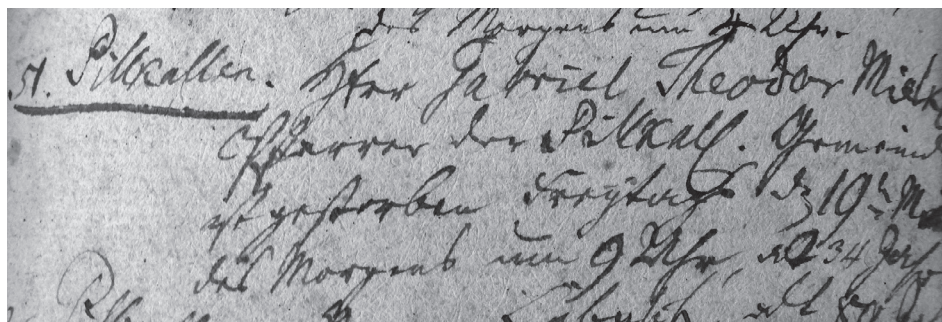 des Morgens um 4 Uhr.
51. Pillkallen. Herr Gabriel Theodor Mielk
Pfarrer der Pillkall. Gemeind
ist gestorben Freytags d. 19t Ma
des Morgens um 9 Uhr, alt 34 Jahr
alt